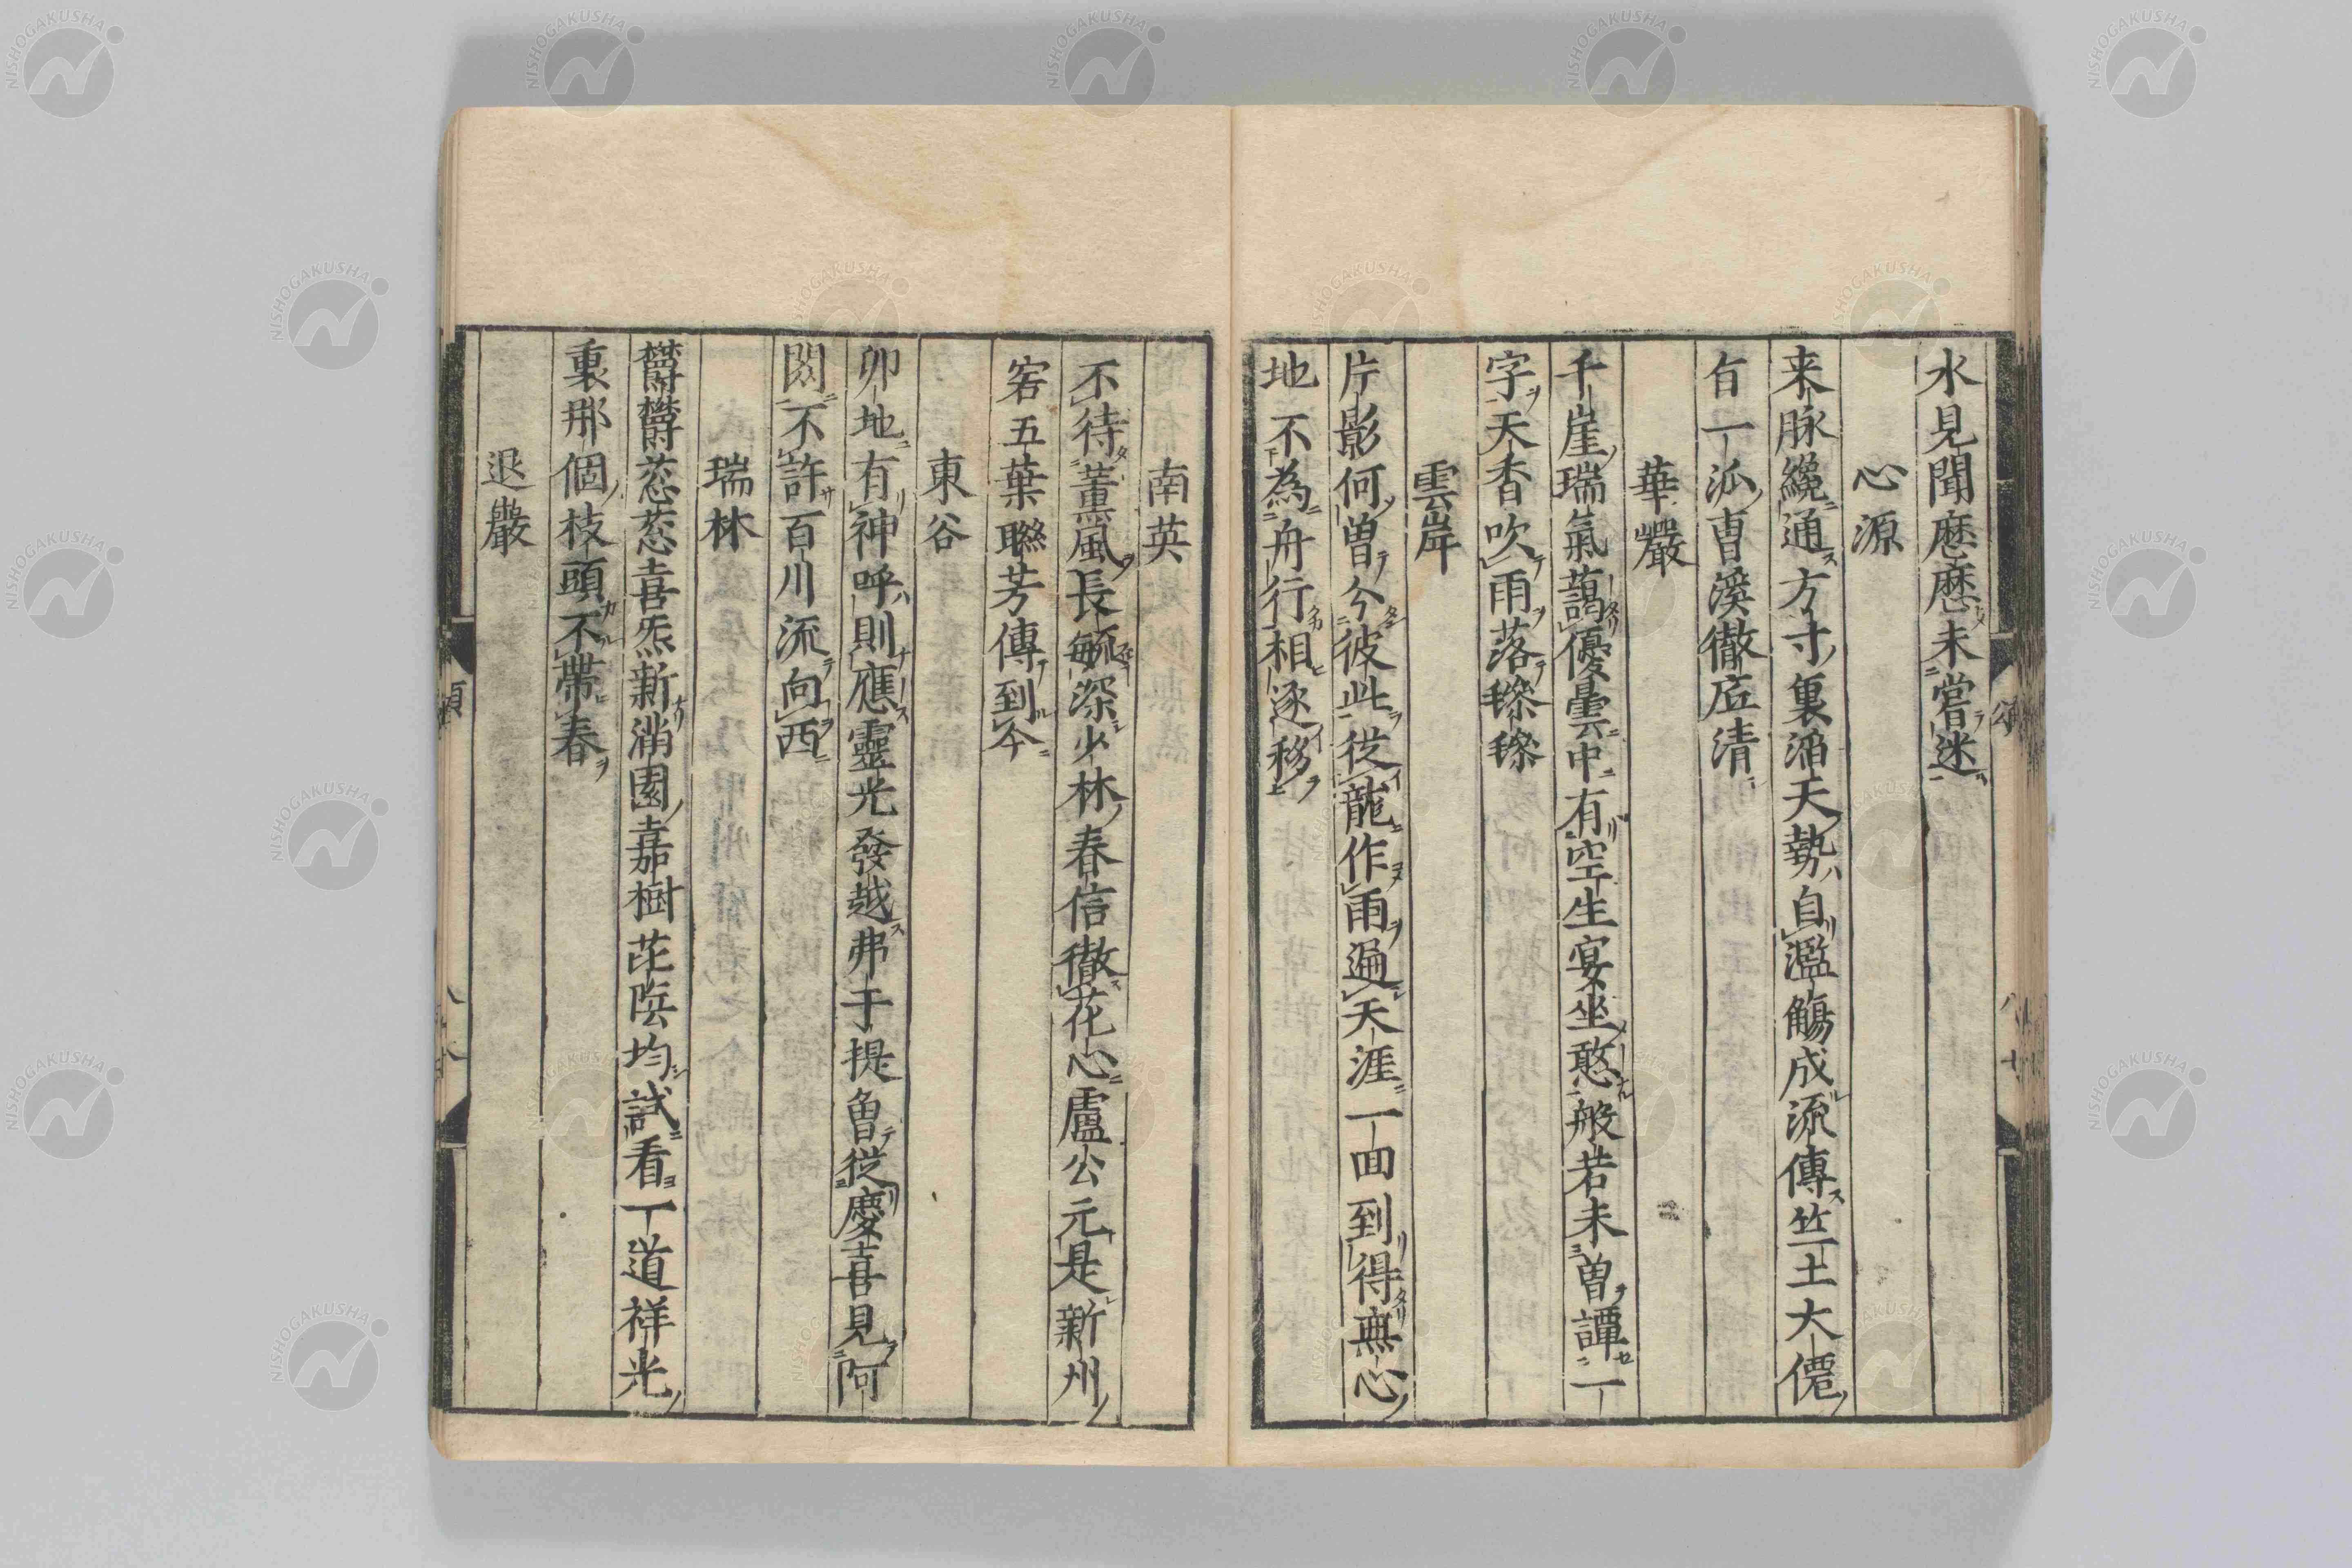 水見聞歴歴未嘗迷
心源
来脉纔通方寸裏滔天勢自濫觴成流傳竺土大僊
百一派曹溪徹底清
華嚴
千崖瑞氣藹優曇中有空生宴坐憨般若未曽譚一
字天香吹雨落毿毿
雲岸
片影何曽分彼此從龍作雨遍天涯一回到得無心
地不為舟行相逐移
南英
不待薫風長毓深少林春信徹花心盧公元是新州
窖五葉聮芳傳到今
東谷
卯地有神呼則應靈光發越弗于提曽從慶喜見阿
閦不許百川流向西
瑞林
欝欝葱葱喜炁新滿園嘉樹茈陰均試看一道祥光
裏那個枝頭不帶春
退巖
頌